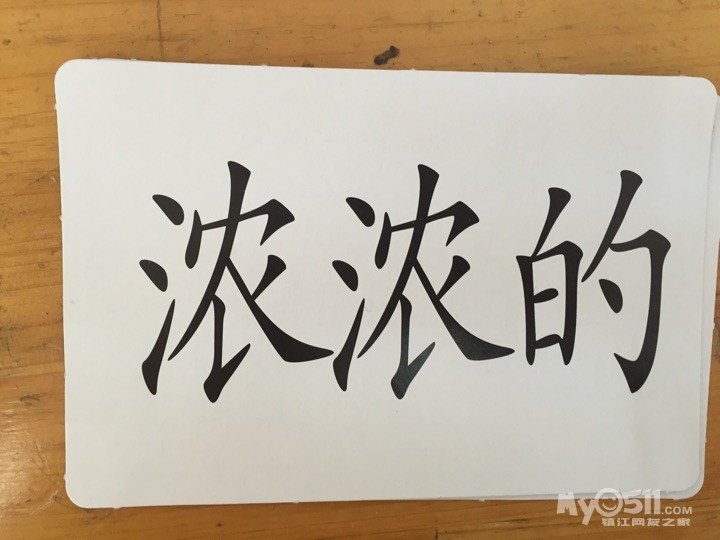 浓浓的
MY0511.COM
镇江网友之家